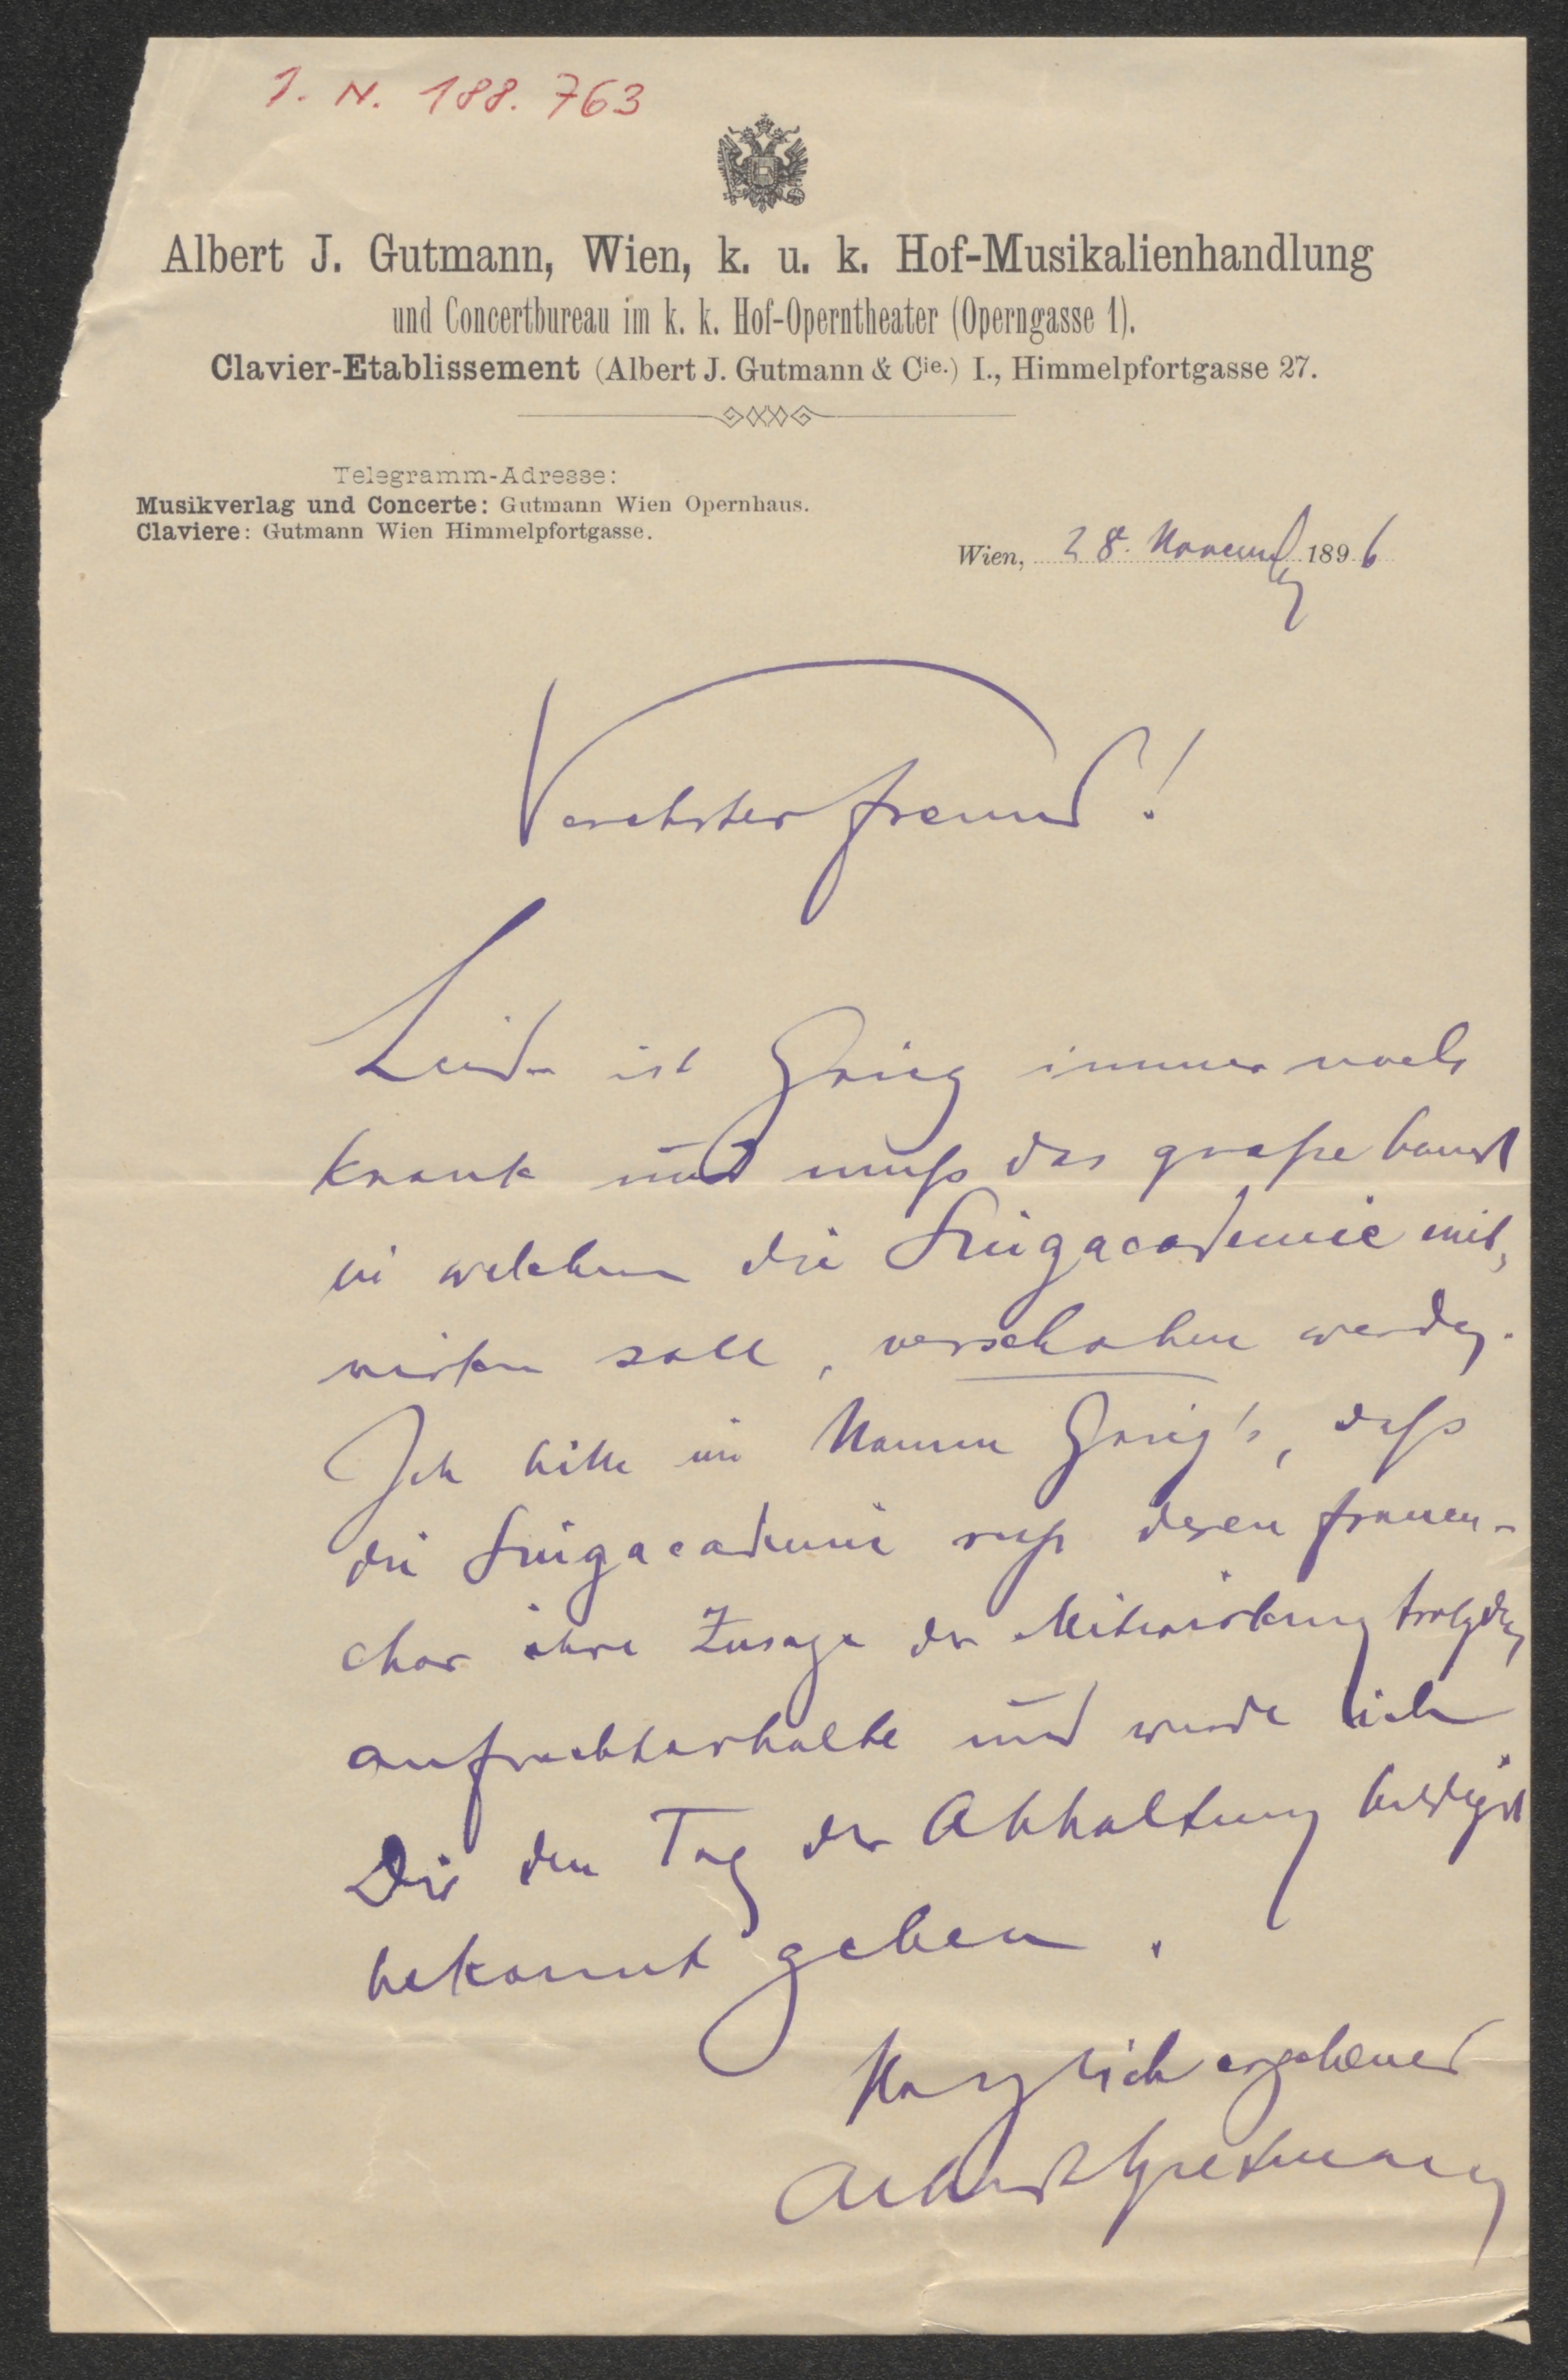 I. N. 188.763
Albert J. Gutmann, Wien, k. u. k. Hof-Musikalienhandlung
und Concertbureau im k. k. Hof-Operntheater (Operngasse 1).
Clavier-Etablissement (Albert J. Gutmann & Cie.) I., Himmelpfortgasse 27.
Telegramm-Adresse:
Musikverlag und Concerte: Gutmann Wien Opernhaus.
Claviere: Gutmann Wien Himmelpfortgasse.
Wien, 28. November 1896
Verehrter Freund!
Leider ist Grieg immer noch
krank und muß das große
in welchem die Singacademie mit,
wirken soll, verschoben werden.
Ich bitte im Namen Grieg's, daß
die Singacademie resp deren Frauen-
chor ihre Zusage der Mitwirkung trotzdem
aufrechterhalte und werde ich
Dir den Tag der Abhaltung baldigst
bekannt geben.
Herzlich ergebener
Albert Gutmann